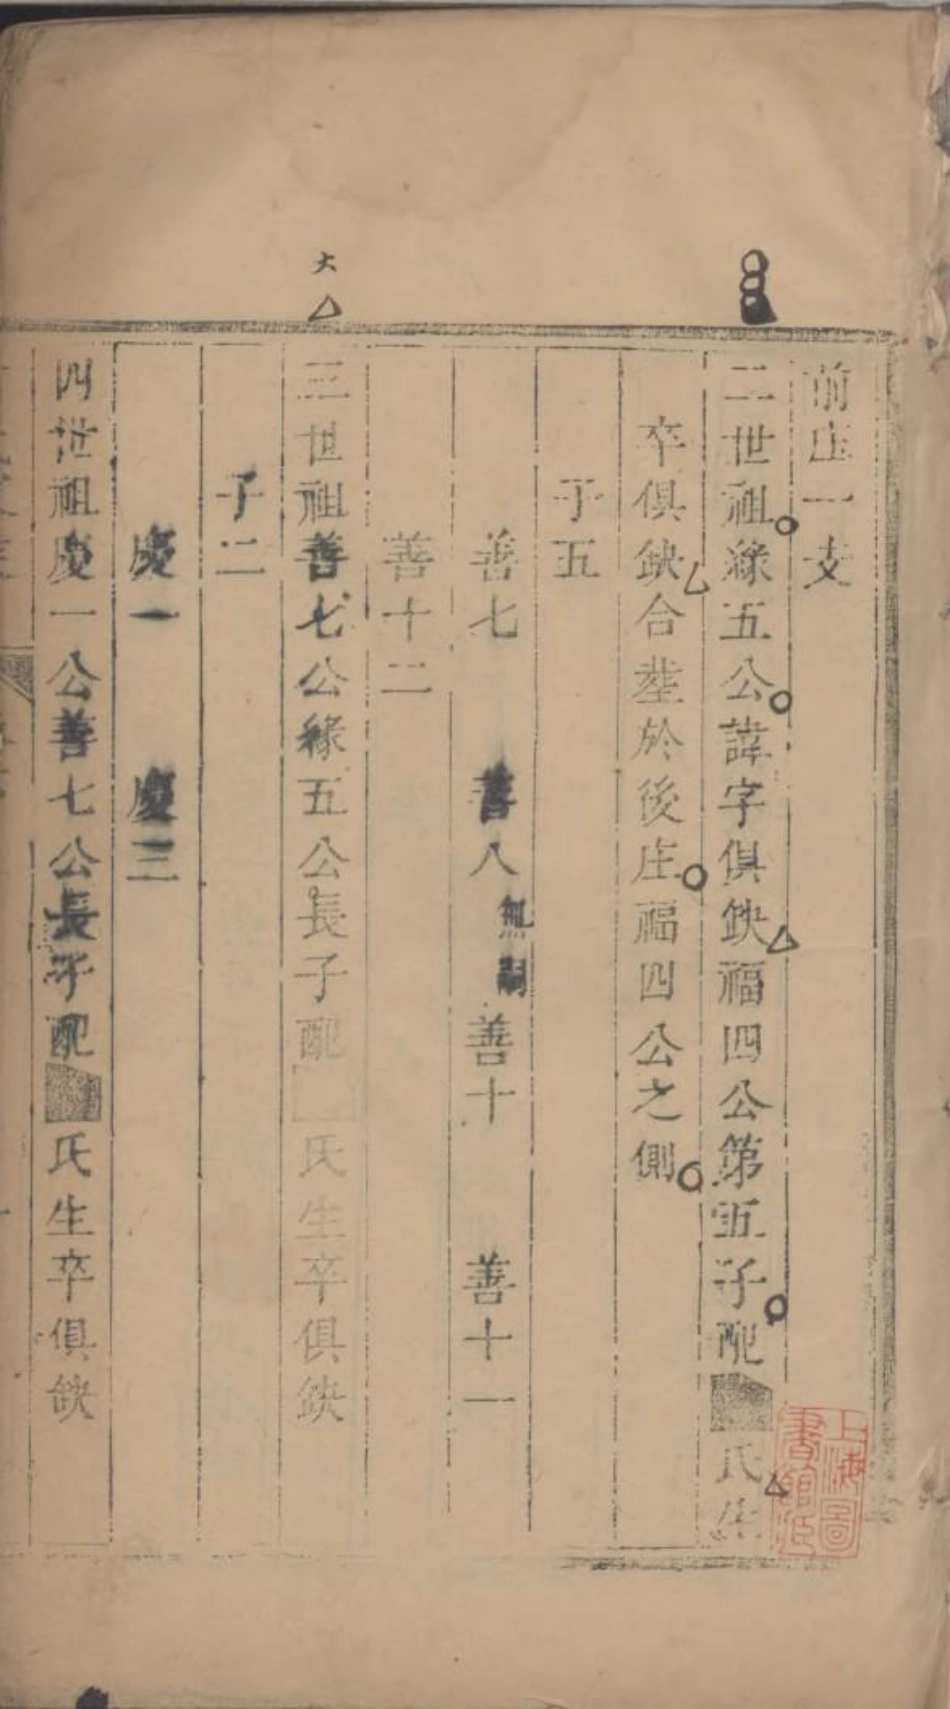 前庄一支
二世祖緣五公諱字俱缺福四公第五子配氏生
卒俱缺合塟於後庄福四公之側
子五
善七 善八無嗣 善十 善十一
善十二
三世祖善七公緣五公長子配氏生卒俱缺
子二
慶一 慶三
四世祖慶一公善七公長子配氏生卒俱缺
大
上海圖書館藏